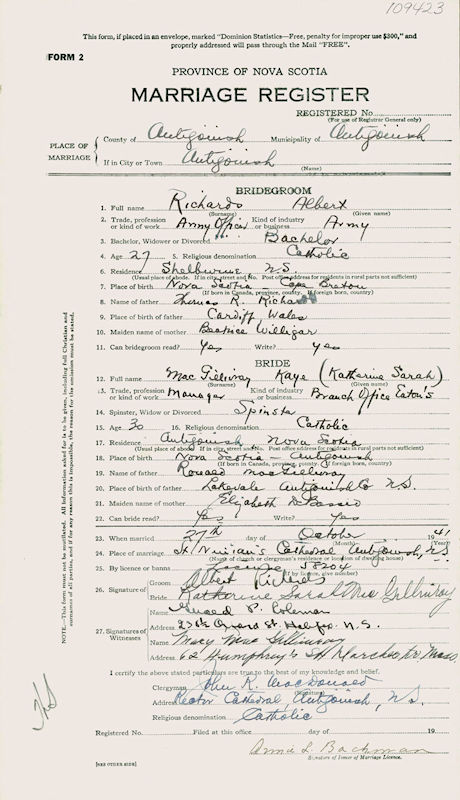 109423
This form, if placed in an envelope, marked "Dominion Statistics—Free, penalty for improper use $300," and
properly addressed will pass through the Mail "FREE".
FORM 2
PROVINCE OF NOVA SCOTIA
MARRIAGE REGISTER
REGISTERED No.
(For use of Registrar General only)
PLACE OF MARRIAGE
County of Antigonish Municipality of Antigonish
If in City or Town Antigonish
(Name)
BRIDEGROOM
1. Full name Richards Albert
(Surname) (Given name)
2. Trade, profession or kind of work Army Officer Kind of industry or business Army
3. Bachelor, Widower or Divorced Bachelor
4. Age 27 5. Religious denomination Catholic
6. Residence Shelburne N.S.
(Usual place of abode. If in city, street and No. Post office address for residents in rural parts not sufficient)
7. Place of birth Nova Scotia Cape Breton
(If born in Canada, province, county. If foreign born, country)
8. Name of father Thomas R. Richards
9. Place of birth of father Cardiff Wales
10. Maiden name of mother Beatrice Willigar
11. Can bridegroom read? Yes Write? Yes
BRIDE
12. Full name MacGillivray Kaye (Katherine Sarah)
(Surname) (Given name)
13. Trade, profession or kind of work Manager Kind of industry or business Branch Office Eaton's
14. Spinster, Widow or Divorced Spinster
15. Age 30 16. Religious denomination Catholic
17. Residence Antigonish Nova Scotia
(Usual place of abode. If in city, street and No. Post office address for residents in rural parts not sufficient)
18. Place of birth Nova Scotia - Antigonish
(If born in Canada, province, county. If foreign born, country)
19. Name of father Ronald MacGillivray
20. Place of birth of father Lakevale Antigonish Co N.S.
21. Maiden name of mother Elizabeth
22. Can bride read? Yes Write? Yes
23. When married 27th day of October 1941
(Month) (Year)
24. Place of marriage St. Ninian's Cathedral Antigonish, N.S.
(Name of church or clergyman's residence or location of dwelling house)
25. By licence or banns License 58204
(If by licence, give number)
26. Signature of
Groom Albert Richards
Bride Katherine Sarah MacGillivray
27. Signatures of Witnesses
Name P. Coleman
Address St. Halifax N.S.
Name Mary MacGillivray
Address 62 Humphrey's St Dorchester Mass.
I certify the above stated particulars are true to the best of my knowledge and belief.
Clergyman John R. MacDonald
(Signature)
Address Rector Cathedral, Antigonish, N.S.
Religious denomination Catholic
Registered No. Filed at this office day of 19
Annie L. Bachman
Signature of Issuer of Marriage Licence.
[SEE OTHER SIDE]
NOTE.—This form must not be mutilated. All information asked for is to be given, including full Christian and
surnames of all parties, and if for any reason that is impossible, the reason for the omission must be stated.